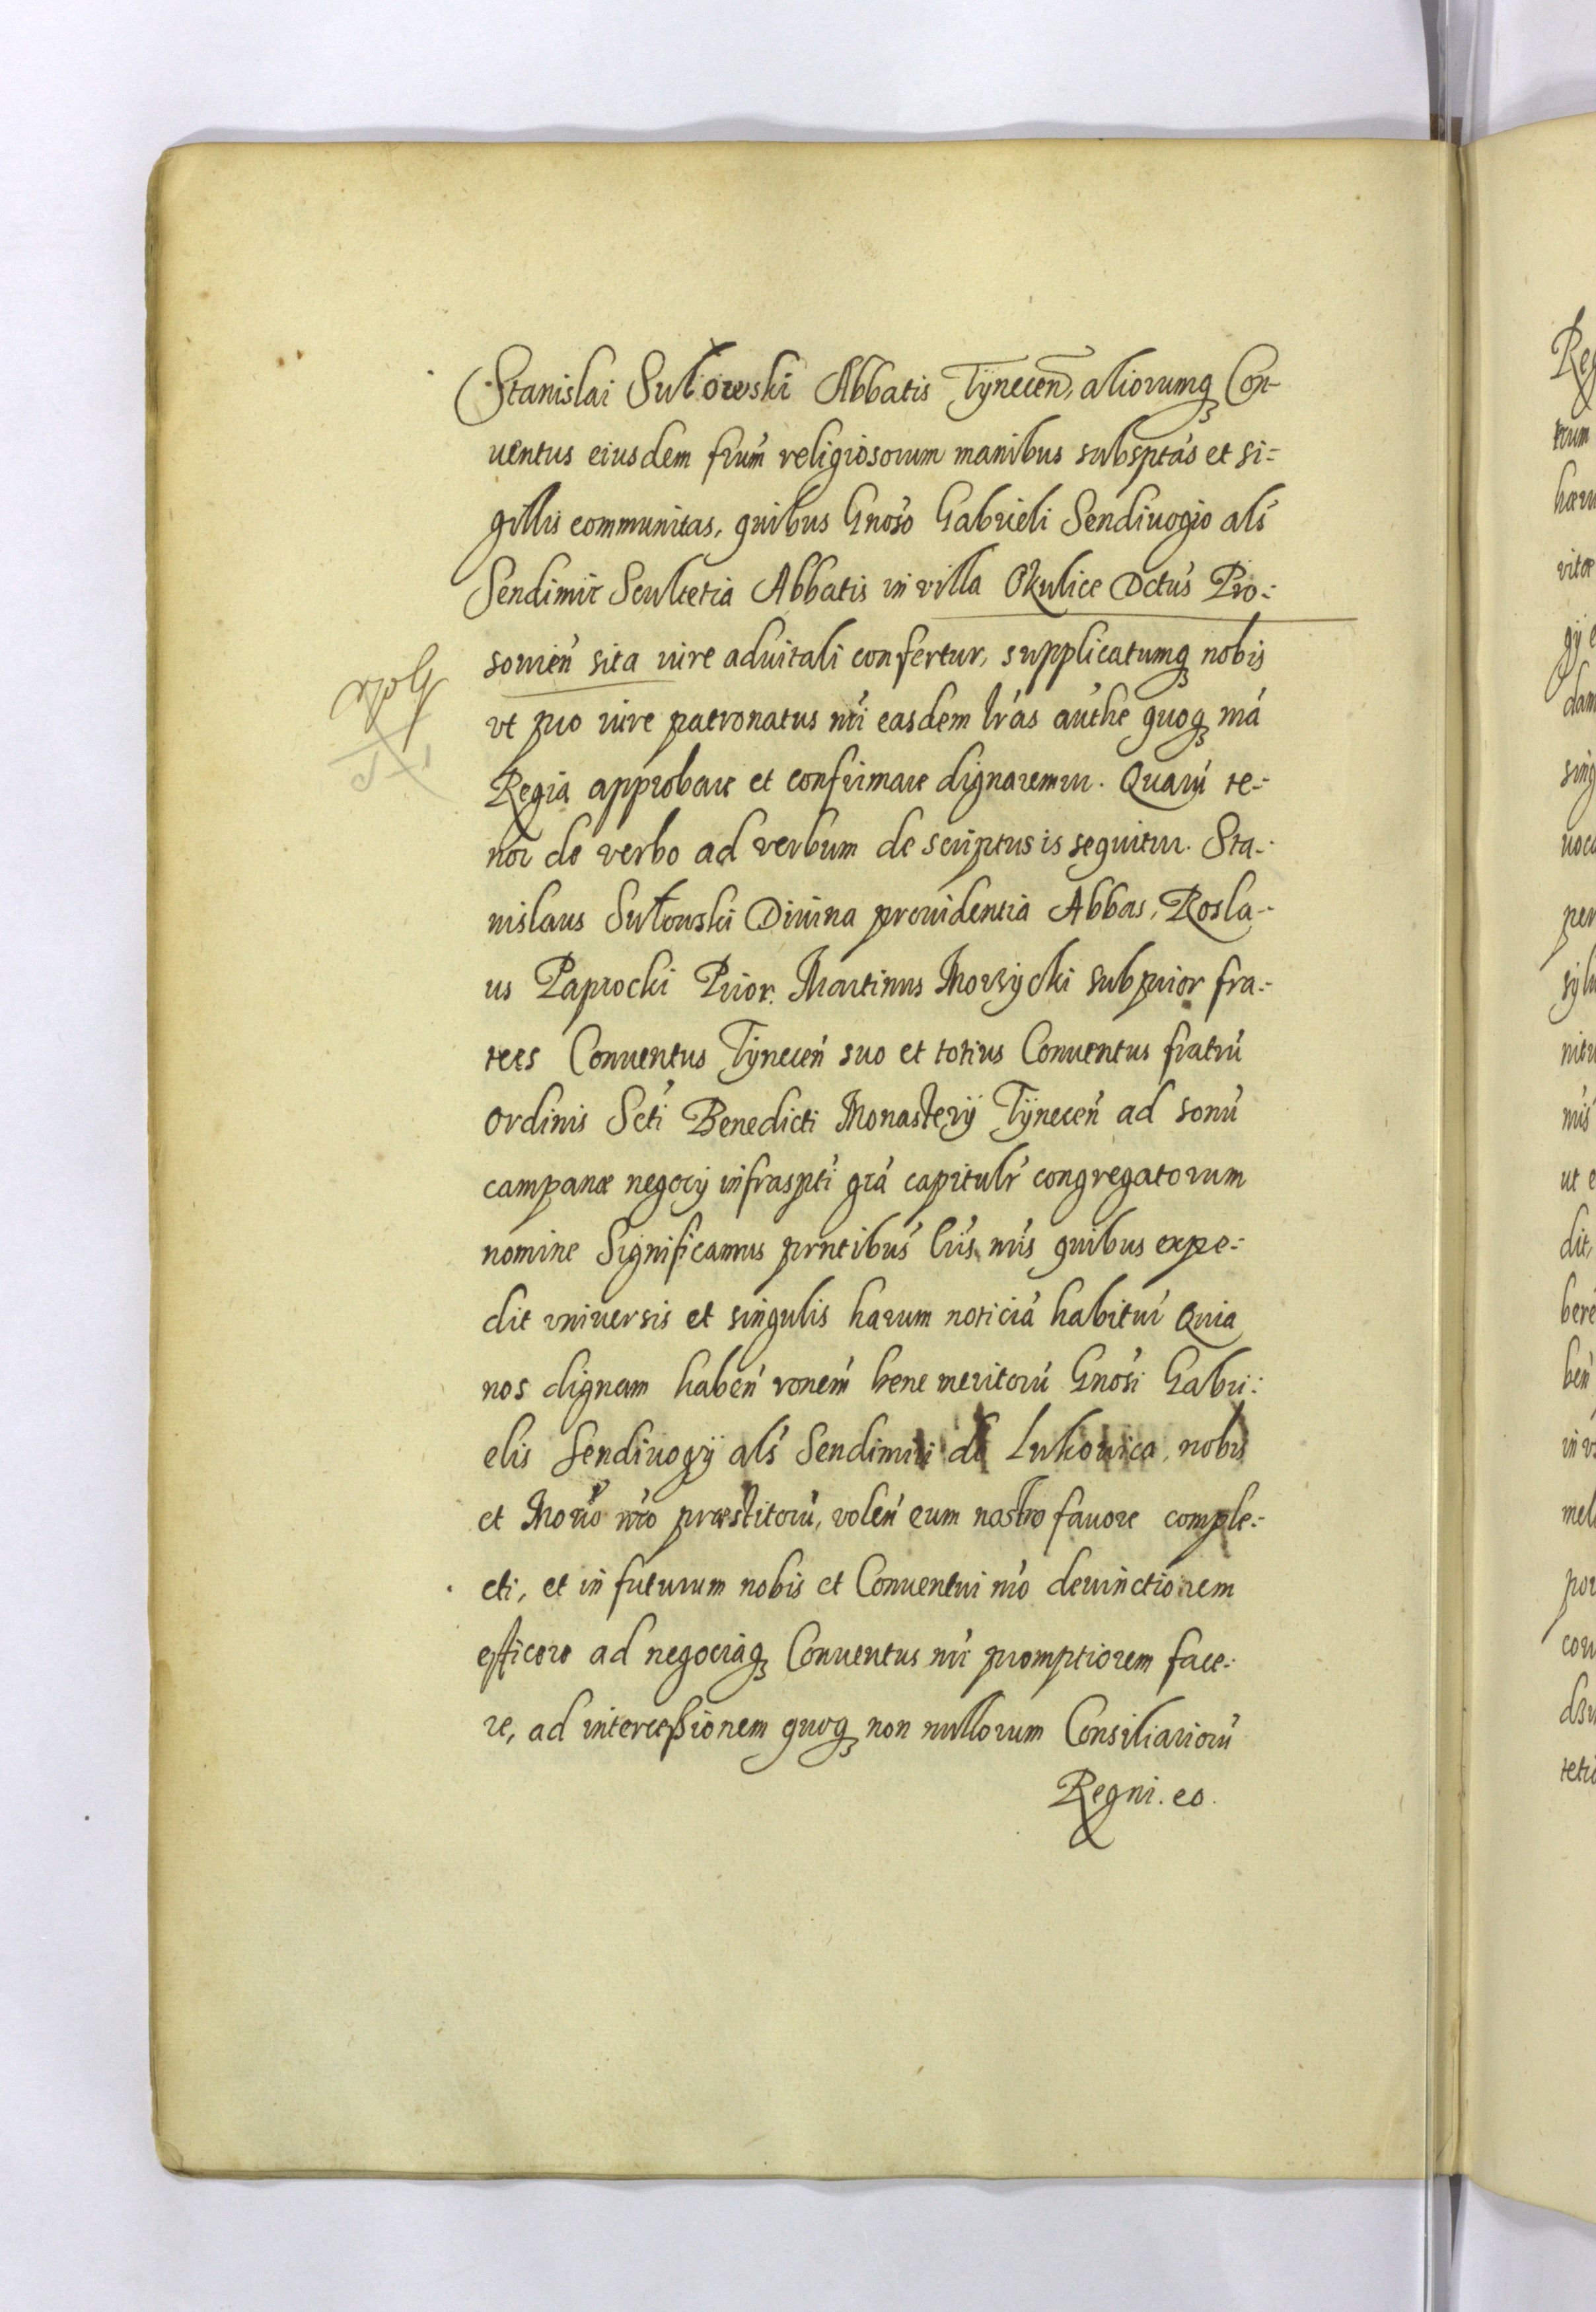 Stanislai Sułowski Abbatis Tÿnecen̄, aliorumq̨ Con-
uentus eiusdem frum̄ religiosorum manibus subsptas et si=
gillis communitas, quibus Gnoso Gabrieli Sendiuogio als
Sendimir Scultetia Abbatis in villa Okulice Dctus Pro=
souien̄ sita iure aduitali confertur, supplicatumq̨ nobis
vt pro iure patronatus nri easdem lras authe quoq̨ nrá
Regia approbare et confirmare dignaremur. Quarú te=
nor de verbo ad verbum descriptus is sequitur. Sta=
nislaus Sułowski Diuina prouidentia Abbas, Rosla=
us Paprocki Prior. Martinus Morzycki subprior fra=
tres Conuentus Tÿnecen̄ suo et totius Conuentus fratrú
Ordinis Scti Benedicti Monasterÿ Tÿnecen̄ ad sonú
campanæ negocÿ infraspti grá capitulr congregatorum
nomine Significamus prntibus lris nris quibus expe=
dit vniuersis et singulis harum noticiá habituri Quia
nos dignam haben̄ ronem̄ bene meritorú Gnosi Gabri=
elis Sendiuogÿ als Sendimiri de Lukowica, nobis
et Morio nro præstitorú, volen̄ eum nostro fauore comple=
cti, et in futurum nobis et Conuentui nro deuinctiorem
efficere ad negociaq̨ Conuentus nri promptiorem face=
re, ad intercessionem quoq̨ non nullorum Consiliariorú
Regni. eo.